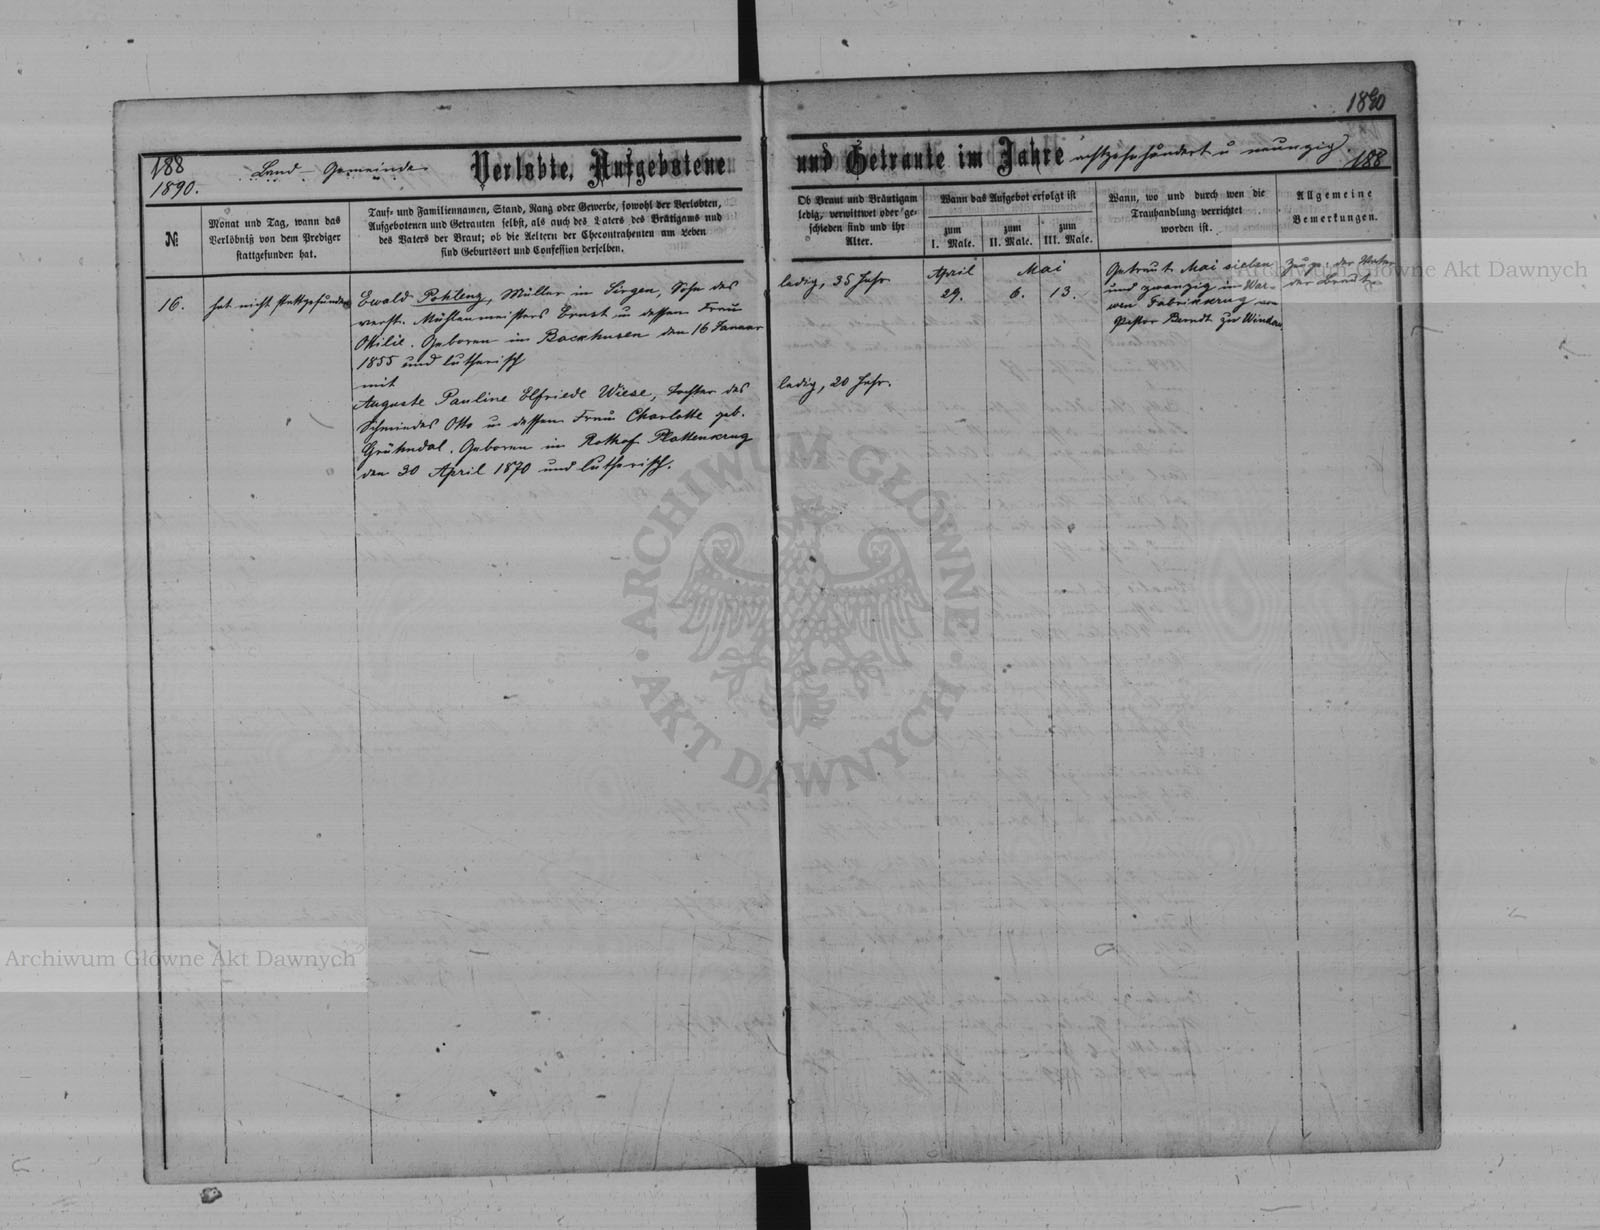 1890
188
1890.
Land-Gemeinde
Verlobte, Aufgebotene
und Getraute im Jahre achtzehnhundert u neunzig.
188
№
Monat und Tag, wann das
Verlöbniß von dem Prediger
stattgefunden hat.
Tauf- und Familiennamen, Stand, Rang oder Gewerbe, sowohl der Verlobten,
Aufgebotenen und Getrauten selbst, als auch des Vaters des Brätigams und
des Vaters der Braut; ob die Aeltern der Checontrahenten am Leben
sind Geburtsort und Confession derselben.
Ob Braut und Bräutigam
ledig, verwittwet oder ge-
schieden sind und ihr
Alter.
Wann das Aufgebot erfolgt ist
zum
I. Male.
zum
II. Male.
zum
III. Male.
Wann, wo und durch wen die
Trauhandlung verrichtet
worden ist.
Allgemeine
Bemerkungen.
16.
hat nicht stattgefunden
Ewald Pohlenz, Müller in Sirgen, Sohn des
verst. Mühlenmeisters Ernst u dessen Frau
Ottilie. Geboren in Backhusen den 16 Januar
1855 und lutherisch
mit
Auguste Pauline Elfriede Wiese, Tochter des
Schmiedes Otto u dessen Frau Charlotte geb.
Grühndal. Geboren in Rothof Plattenkrug
den 30 April 1870 und lutherisch.
ledig, 35 Jahr
ledig, 20 Jahr.
April
29.
Mai
6. 13.
Getraut Mai sieben
und zwanzig in War-
wen Fabrikkrug von
Pastor Berndt zu Windau
Zeuge: der Vater
der Braut.
Archiwum Główne Akt Dawnych
ARCHIWUM GŁÓWNE • AKT DAWNYCH •
Archiwum Główne Akt Dawnych